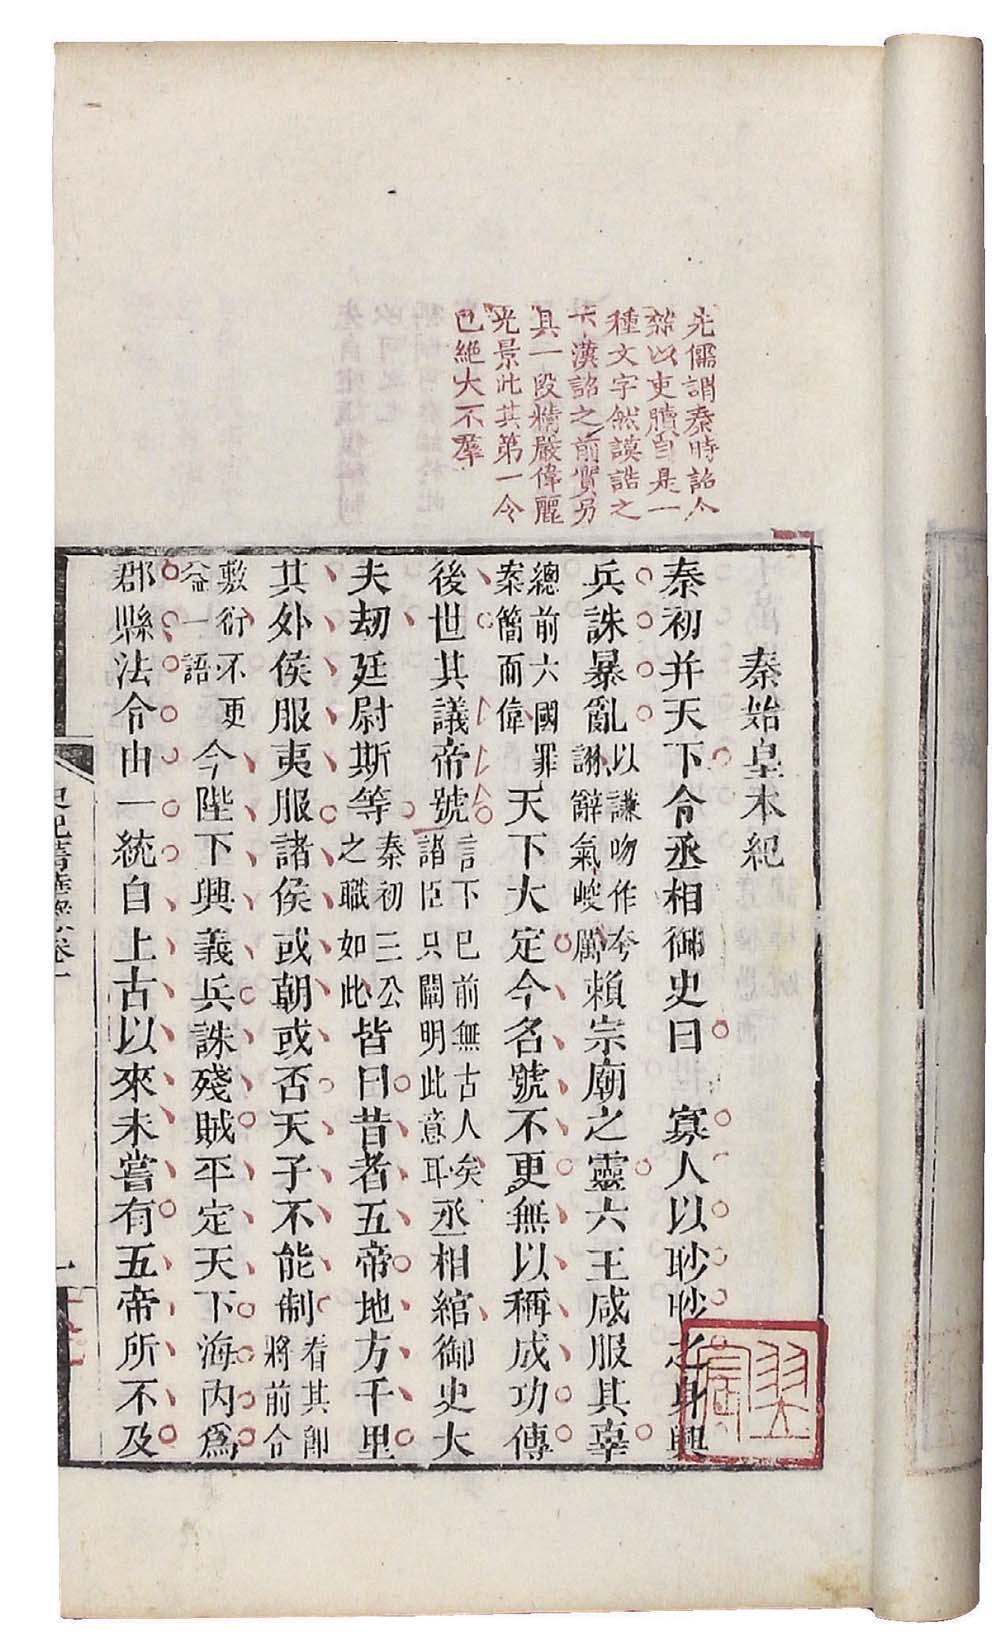 先儒謂秦時詔令
雜以吏牘自是一
種文字然謨誥之
下漢詔之前實另
具一段精嚴偉麗
光景此其第一令
已絕大不羣
秦始皇本紀
秦初并天下令丞相御史曰 寡人以眇眇之身興
兵誅暴亂以謙吻作夸詡辭氣峻厲賴宗廟之靈六王咸服其辜
總前六國罪案簡而偉天下大定今名號不更無以稱成功傳
後世其議帝號言下已前無古人矣諸臣只闡明此意耳丞相綰御史大
夫劫廷尉斯等秦初三公之職如此皆曰昔者五帝地方千里
其外侯服夷服諸侯或朝或否天子不能制看其卽將前令
敷衍不更益一語今陛下興義兵誅殘賊平定天下海內爲
郡縣法令由一統自上古以來未嘗有五帝所不及
史記菁華錄卷一
一